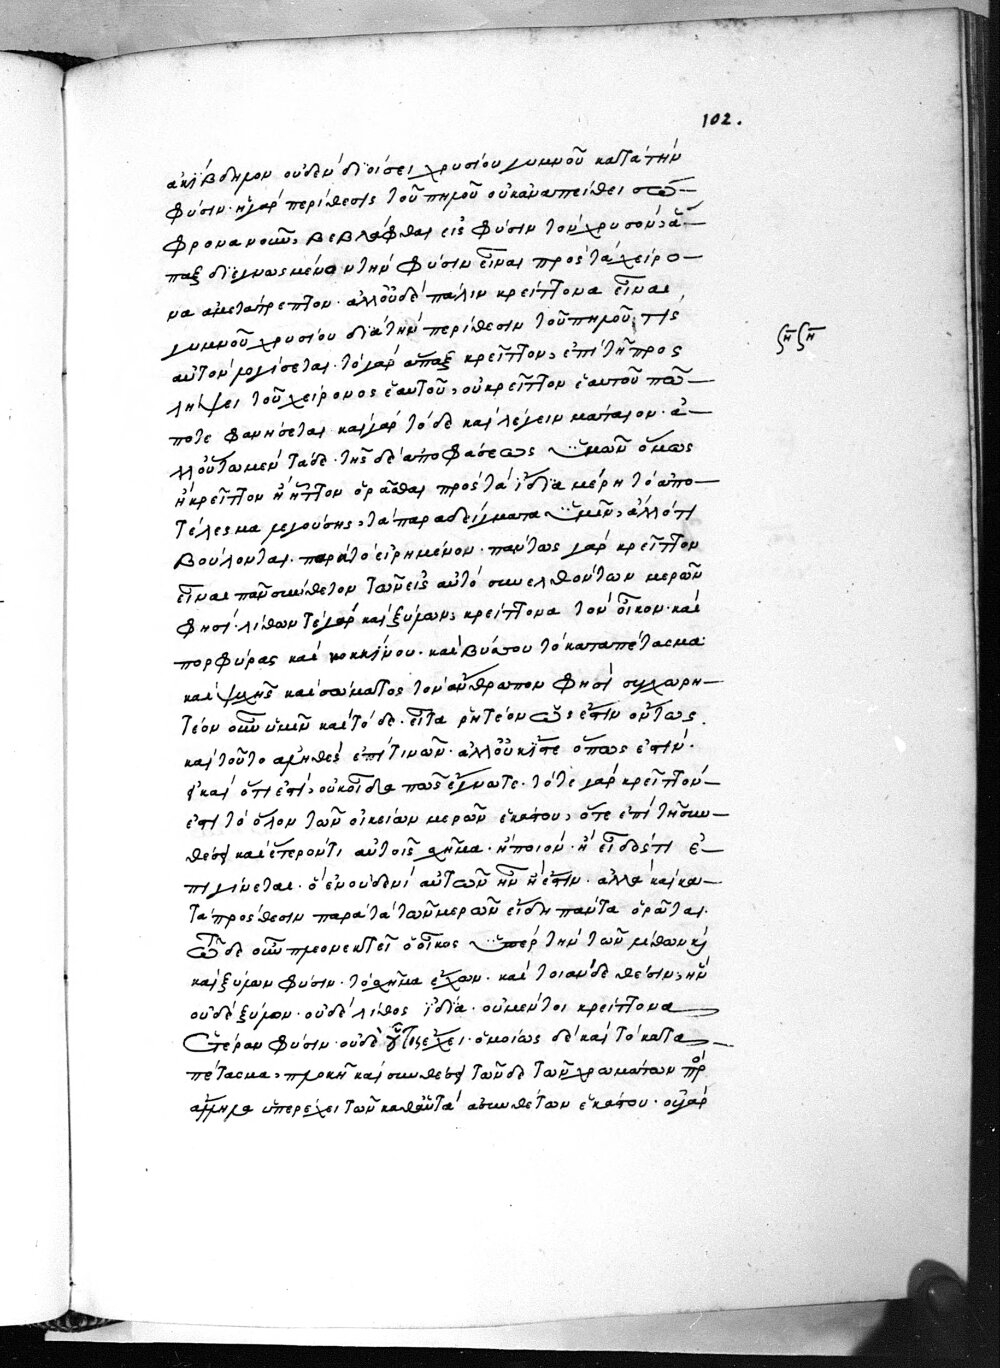 102.
ἀκίβδηλον οὐδὲν διοίσει χρυσίου γυμνοῦ κατὰ τὴν
φύσιν· ἡ γὰρ περίθεσις τοῦ πηλοῦ οὐκ ἀναπείθει σώ-
φρονα νοῦν, βεβλάφθαι εἰς φύσιν τὸν χρυσόν, ἅ-
παξ διεγνωσμένον τὴν φύσιν εἶναι πρὸς τὰ χείρο-
να ἀμετάτρεπτον· ἀλλ' οὐδὲ πάλιν κρείττονα εἶναι
γυμνοῦ χρυσίου διὰ τὴν περίθεσιν τοῦ πηλοῦ τίς
αὐτὸν λογίσεται· τὸ γὰρ ἅπαξ κρεῖττον, ἐπὶ τῇ προς
λήψει τοῦ χείρονος ἑαυτοῦ, οὐ κρεῖττον ἑαυτοῦ πώ-
ποτε φανήσεται· καὶ γὰρ τόδε καὶ λέγειν μάταιον· ἀ-
λλ' οὕτω μὲν τάδε· τῆς δὲ ἀποφάσεως ὑμῶν ὅμως
ἢ κρεῖττον ἢ ἧττον ὁρᾶσθαι πρὸς τὰ ἴδια μέρη τὸ ἀπο-
τέλεσμα λεγούσης, τὰ παραδείγματα ὑμῖν, ἄλλό τι
βούλονται· παρὰ τὸ εἰρημένον· πάντως γὰρ κρεῖττον
εἶναι πᾶν σύνθετον τῶν εἰς αὐτὸ συνελθόντων μερῶν
φησί· λίθων τε γὰρ καὶ ξύλων, κρείττονα τὸν οἶκον· καὶ
πορφύρας καὶ κοκκίνου· καὶ βύσσου τὸ καταπέτασμα·
καὶ ψυχῆς καὶ σώματος τὸν ἄνθρωπον φησί συγχωρη-
τέον οὖν ὑμῖν καὶ τόδε· εἶτα ῥητέον ὡς ἔστιν ὄντως
καὶ τοῦτο ἀληθὲς ἐπὶ τινῶν· ἀλλ' οὐκ ἴστε ὅπως ἐστίν·
καὶ ὅτι ἐστί, οὐκ οἶδα πῶς ἔγνωτε· τότε γὰρ κρεῖττόν
ἐστι τὸ ὅλον τῶν οἰκείων μερῶν ἑκάστου, ὅτε ἐπὶ τῇ συν-
θέσει καὶ ἕτερόν τι αὐτοῖς σχῆμα· ἢ ποιὸν· ἢ εἶδός τι ἐ-
πιγίνεται· ὃ ἐν οὐδενὶ αὐτῶν ἦν ἢ ἔστιν· ἀλλὰ καὶ κα-
τὰ πρόσθεσιν παρὰ τὰ τῶν μερῶν εἴδη πάντα ὁρᾶται·
ὧδε οὖν πλεονεκτεῖ ὁ οἶκος ὑπὲρ τὴν τῶν λίθων κὶ
καὶ ξύλων φύσιν· τὸ σχῆμα ἔχων· καὶ τοιάνδε θέσιν, ἣν
οὐδὲ ξύλον· οὐδὲ λίθος ἰδίᾳ· οὐ μέν τοι κρείττονα
ἑτέραν φύσιν· οὐδὲ οὕτως ἔχει· ὁμοίως δὲ καὶ τὸ κατα-
πέτασμα, πλοκῇ καὶ συνθέσει τῶνδε τῶν χρωμάτων πρὸς
ἄλληλα ὑπερέχει τῶν καθ' αὑτὰ ἀσυνθέτων ἑκάστου· οὐ γὰρ